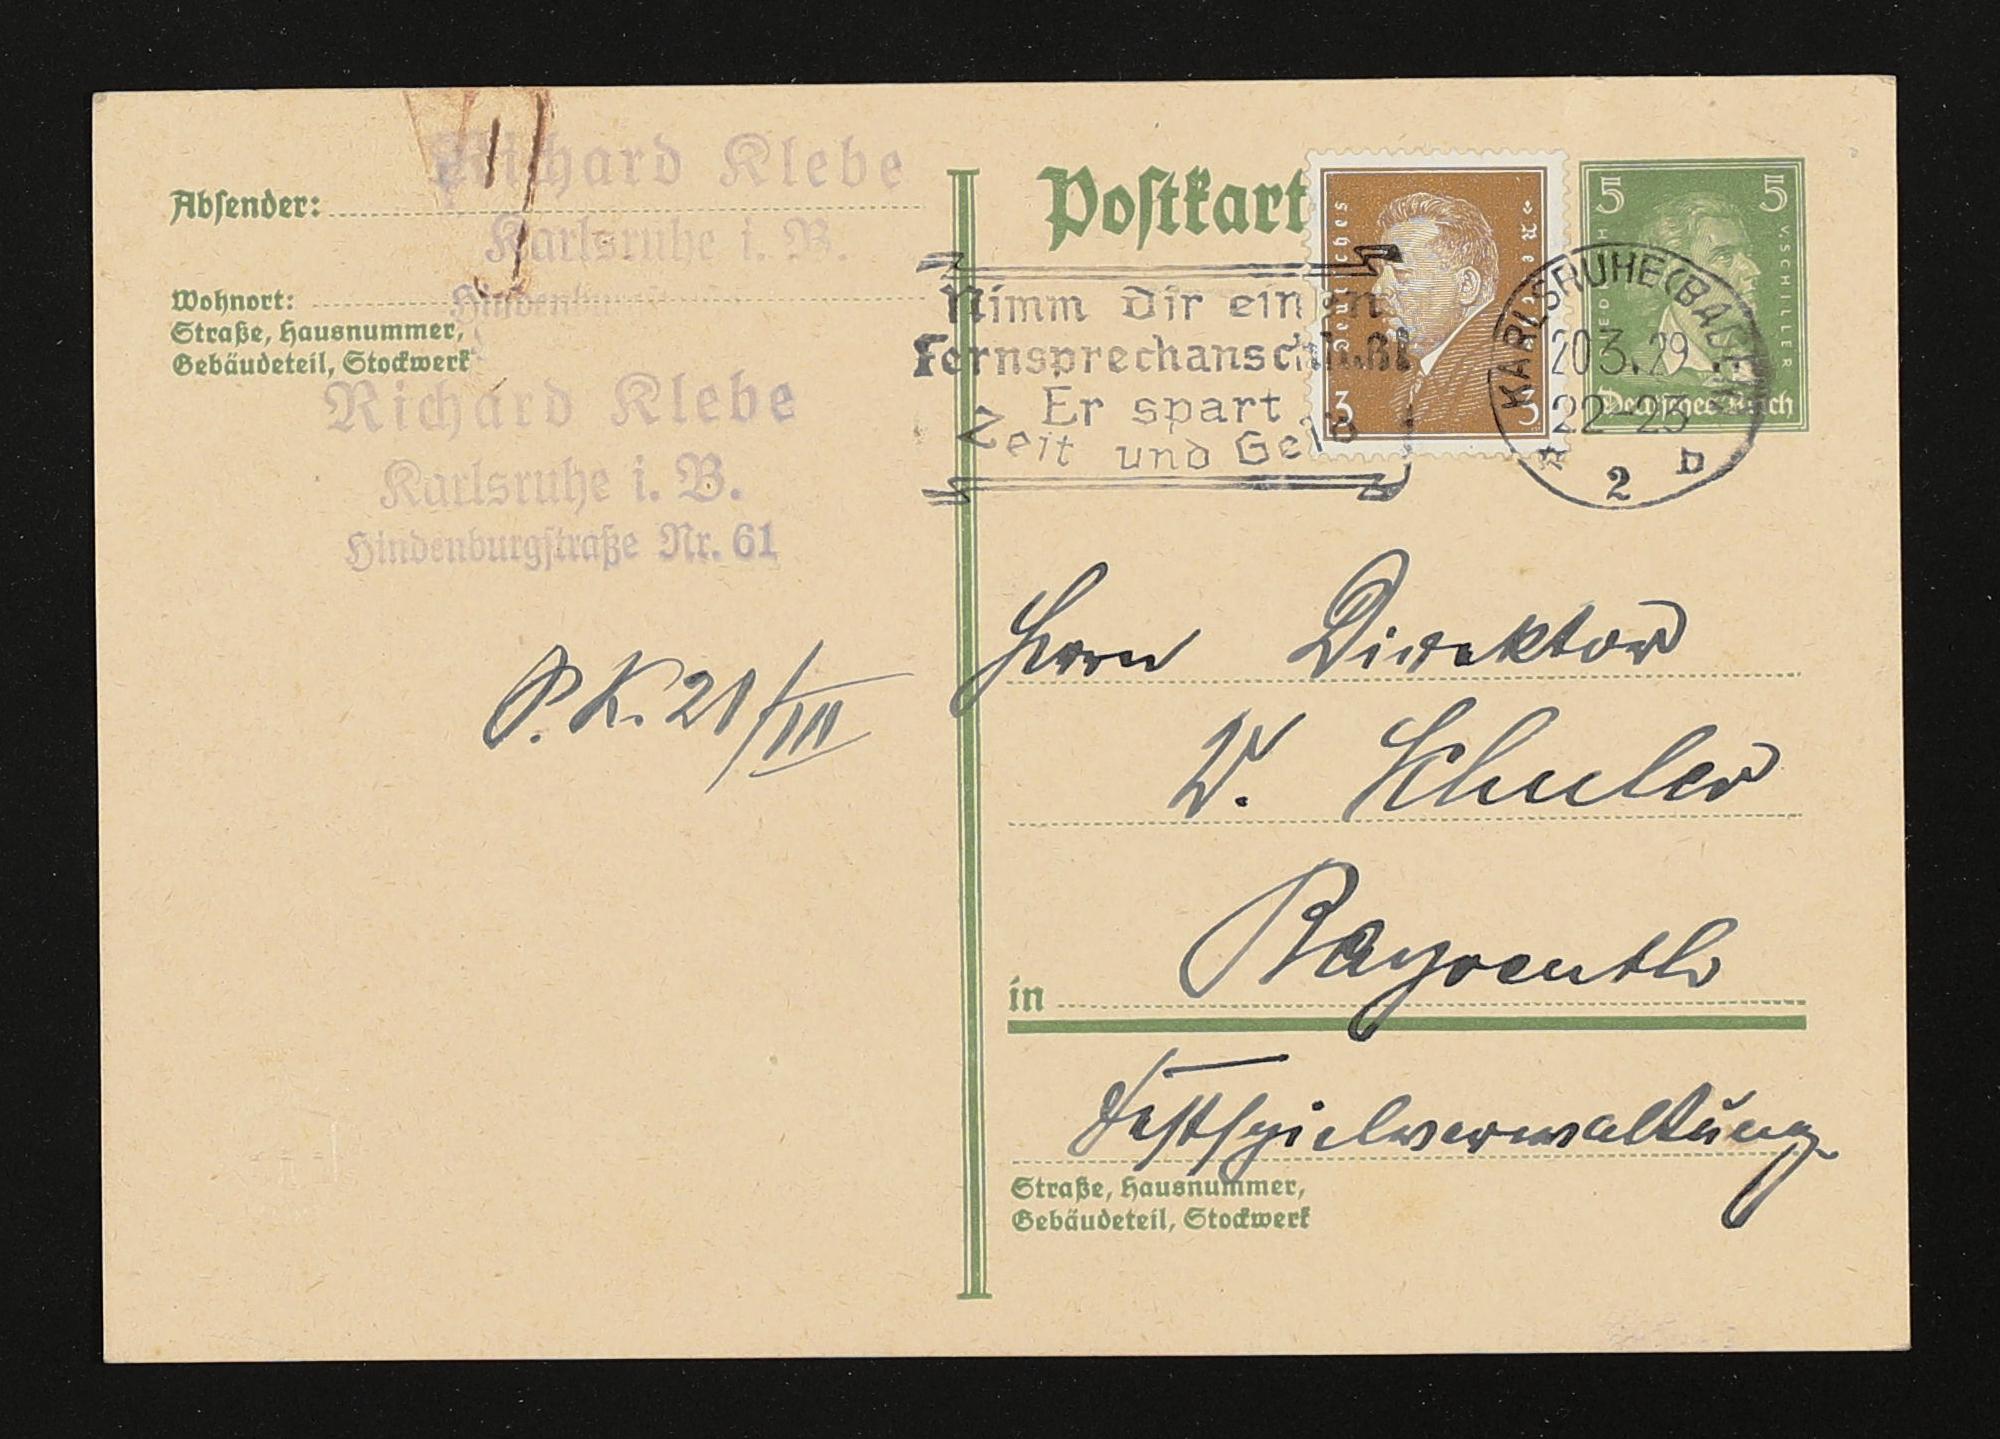 Absender:
Richard Klebe
Karlsruhe i. B.
Wohnort:
Hindenburgstraße
Straße, Hausnummer,
Gebäudeteil, Stockwerk
Richard Klebe
Karlsruhe i. B.
Hindenburgstraße Nr. 61
P. K. 21/III
Postkart
Nimm Dir einen
Fernsprechanschluß!
Er spart
Zeit und Geld
Deutsches Reich
3 3
5 5
FRIEDRICH V SCHILLER
Deutsches Reich
KARLSRUHE (BADEN)
20.3.29
22-23
☆ 2 D
Herrn Direktor
Dr. Schuler
in Bayreuth
Festspielverwaltung
Straße, Hausnummer,
Gebäudeteil, Stockwerk